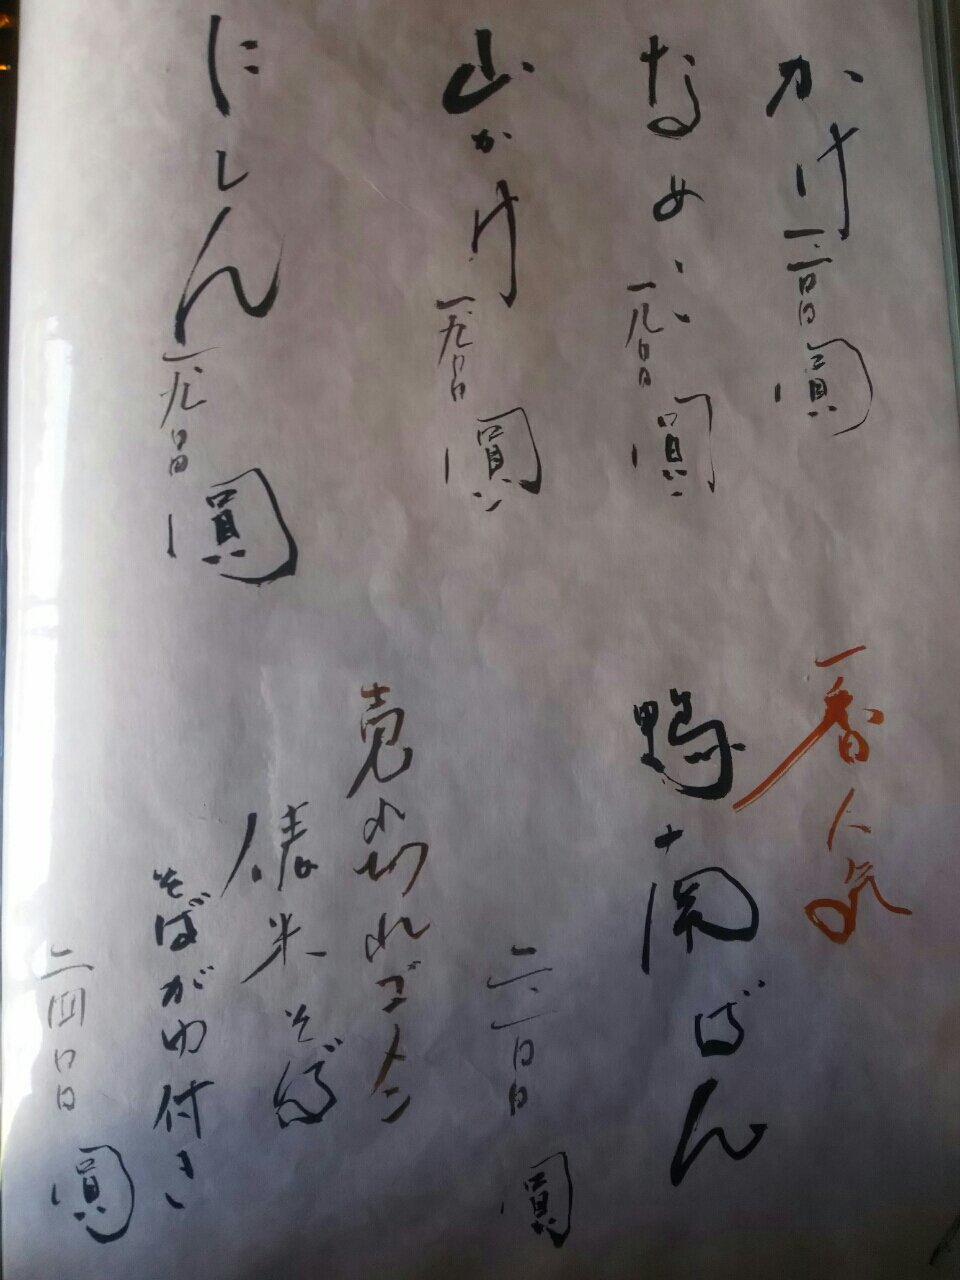 かけ 一二〇〇圓
なめこ 一八〇〇圓
山かけ 一九〇〇圓
にしん 一九〇〇圓
一番人気
鴨南ばん
二一〇〇圓
売れ切れゴメン
俵米そば
そばがゆ付き
二四〇〇圓